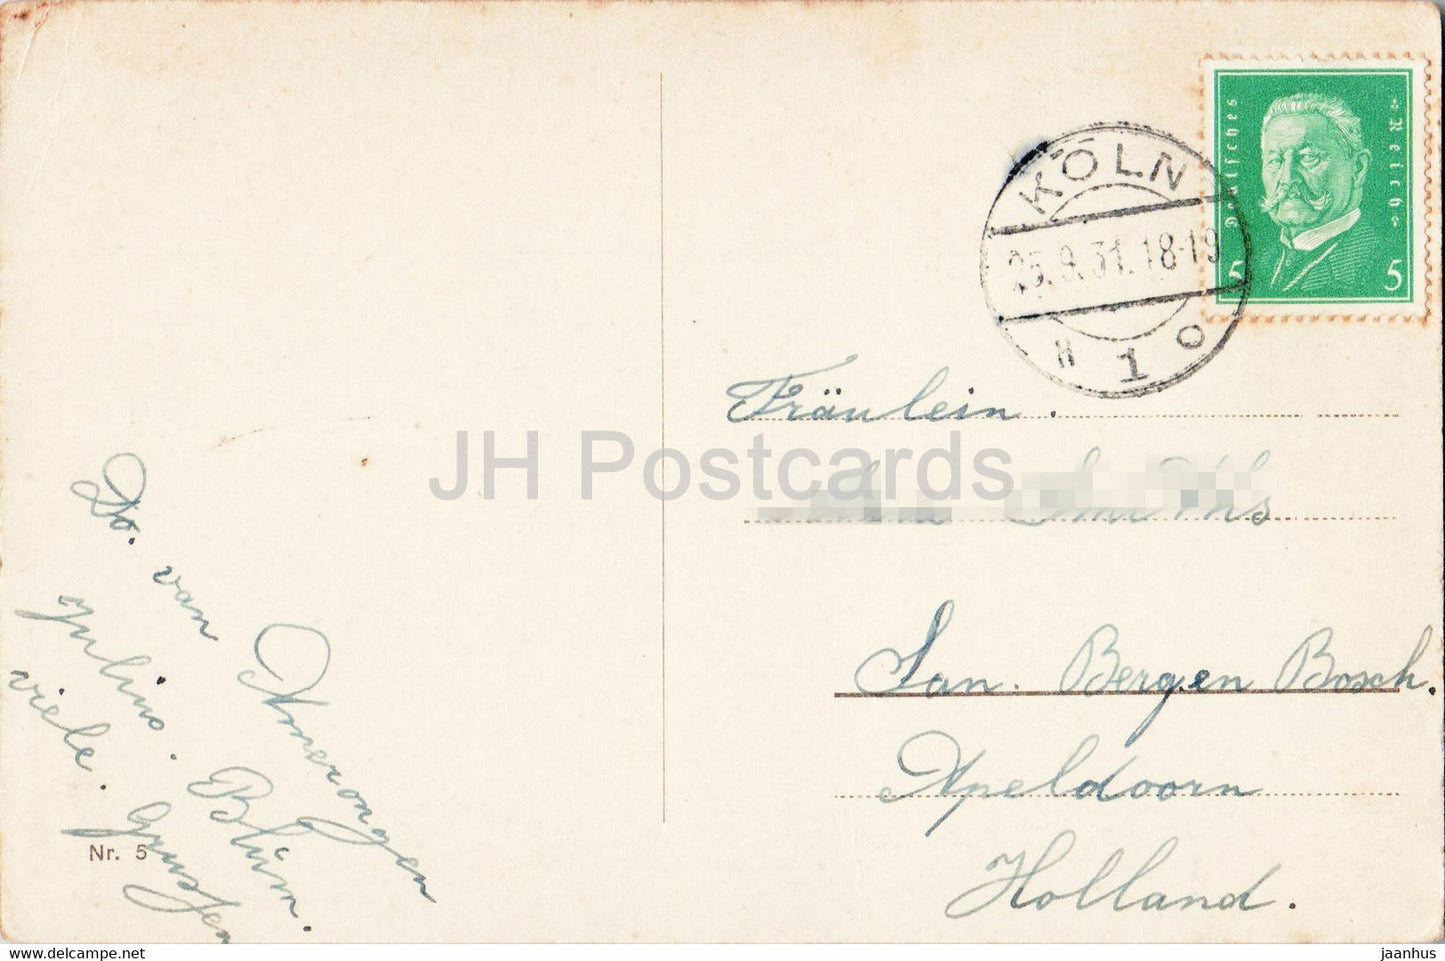 Deutsches Reich
5 5
KÖLN
25.9.31.18-19
1
Fräulein.
San. Bergen Bosch.
Apeldoorn
Holland.
Do. van Amerongen
Julius. Blüm.
viele. Grussen
Nr. 5
JH Postcards
https://jhpostcards.com
jaanhus